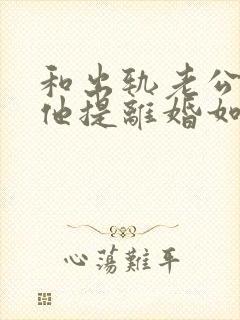 和出轨老公
他提離婚如
心蕩難平